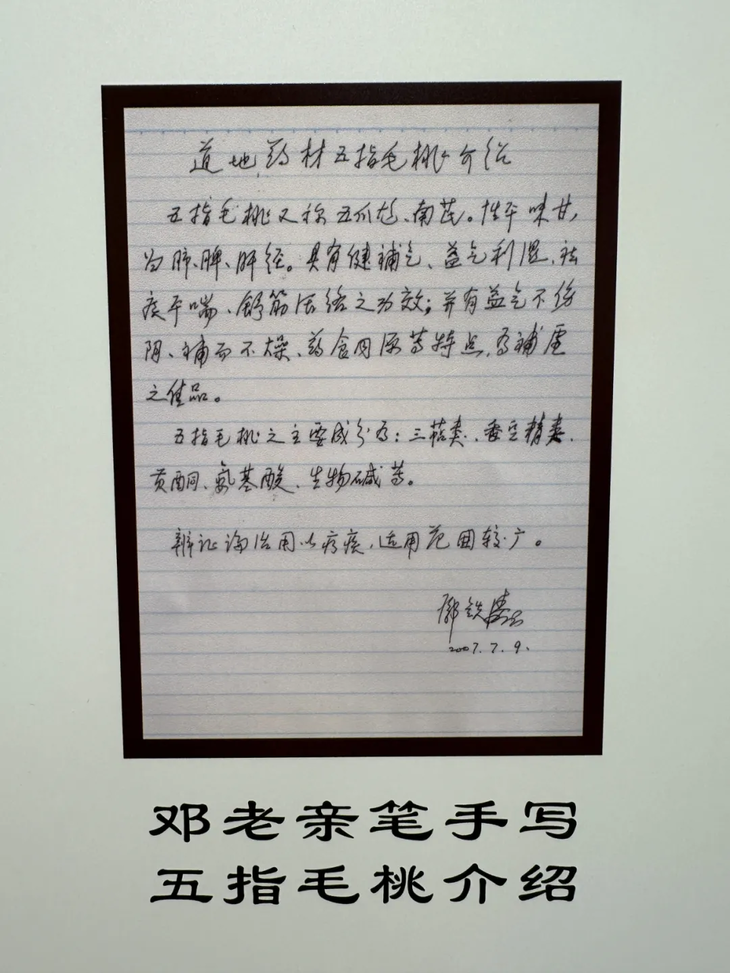 道地药材五指毛桃介绍
五指毛桃又称五爪龙、南芪。性平味甘，
为肺、脾、肝经。具有健补气、益气利湿、祛
痰平喘、舒筋活络之功效；并有益气不伤
阴、补而不燥、药食同源等特点，为补虚
之佳品。
五指毛桃之主要成分为：三萜类、香豆精类、
黄酮、氨基酸、生物碱等。
辨证论治用以疗疾，适用范围较广。
邓铁涛
2007.7.9.
邓老亲笔手写
五指毛桃介绍